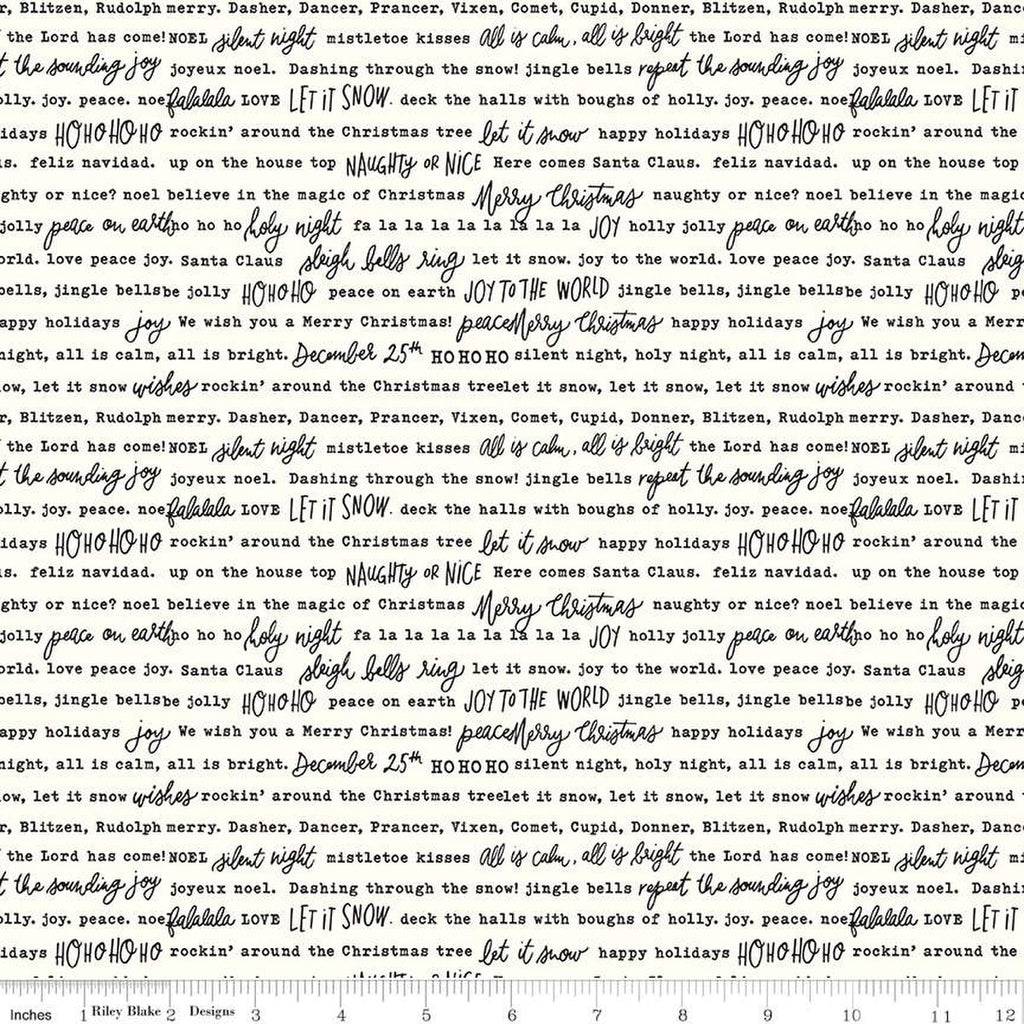 r, Blitzen, Rudolph merry. Dasher, Dancer, Prancer, Vixen, Comet, Cupid, Donner, Blitzen, Rudolph merry. Dasher, Danc
the Lord has come! NOEL silent night mistletoe kisses All is calm, all is bright the Lord has come! NOEL silent night mi
t the sounding joy joyeux noel. Dashing through the snow! jingle bells repeat the sounding joy joyeux noel. Dashi
olly. joy. peace. noe falalala LOVE LET iT SNOW. deck the halls with boughs of holly. joy. peace. noe falalala LOVE LET iT
idays HOHOHOHO rockin' around the Christmas tree let it snow happy holidays HOHOHOHO rockin' around the
us. feliz navidad. up on the house top NAUGHTY OR NiCE Here comes Santa Claus. feliz navidad. up on the house top
ghty or nice? noel believe in the magic of Christmas Merry Christmas naughty or nice? noel believe in the magic
jolly peace on earth ho ho ho holy night fa la la la la la la la la JOY holly jolly peace on earth ho ho ho holy night
orld. love peace joy. Santa Claus sleigh bells ring let it snow. joy to the world. love peace joy. Santa Claus sleig
bells, jingle bells be jolly HOHOHO peace on earth JOY TO THE WORLD jingle bells, jingle bells be jolly HOHOHO pe
appy holidays joy We wish you a Merry Christmas! peace Merry Christmas happy holidays joy We wish you a Merr
night, all is calm, all is bright. December 25th HO HO HO silent night, holy night, all is calm, all is bright. Decem
ow, let it snow wishes rockin' around the Christmas tree let it snow, let it snow, let it snow wishes rockin' around
r, Blitzen, Rudolph merry. Dasher, Dancer, Prancer, Vixen, Comet, Cupid, Donner, Blitzen, Rudolph merry. Dasher, Danc
the Lord has come! NOEL silent night mistletoe kisses All is calm, all is bright the Lord has come! NOEL silent night mi
t the sounding joy joyeux noel. Dashing through the snow! jingle bells repeat the sounding joy joyeux noel. Dashi
olly. joy. peace. noe falalala LOVE LET iT SNOW. deck the halls with boughs of holly. joy. peace. noe falalala LOVE LET iT
idays HOHOHOHO rockin' around the Christmas tree let it snow happy holidays HOHOHOHO rockin' around the
us. feliz navidad. up on the house top NAUGHTY OR NiCE Here comes Santa Claus. feliz navidad. up on the house top
ghty or nice? noel believe in the magic of Christmas Merry Christmas naughty or nice? noel believe in the magic
jolly peace on earth ho ho ho holy night fa la la la la la la la la JOY holly jolly peace on earth ho ho ho holy night
orld. love peace joy. Santa Claus sleigh bells ring let it snow. joy to the world. love peace joy. Santa Claus sleig
bells, jingle bells be jolly HOHOHO peace on earth JOY TO THE WORLD jingle bells, jingle bells be jolly HOHOHO pe
appy holidays joy We wish you a Merry Christmas! peace Merry Christmas happy holidays joy We wish you a Merr
night, all is calm, all is bright. December 25th HO HO HO silent night, holy night, all is calm, all is bright. Decem
ow, let it snow wishes rockin' around the Christmas tree let it snow, let it snow, let it snow wishes rockin' around
r, Blitzen, Rudolph merry. Dasher, Dancer, Prancer, Vixen, Comet, Cupid, Donner, Blitzen, Rudolph merry. Dasher, Danc
the Lord has come! NOEL silent night mistletoe kisses All is calm, all is bright the Lord has come! NOEL silent night mi
t the sounding joy joyeux noel. Dashing through the snow! jingle bells repeat the sounding joy joyeux noel. Dashi
olly. joy. peace. noe falalala LOVE LET iT SNOW. deck the halls with boughs of holly. joy. peace. noe falalala LOVE LET iT
idays HOHOHOHO rockin' around the Christmas tree let it snow happy holidays HOHOHOHO rockin' around the
Inches 1 Riley Blake 2 Designs 3 4 5 6 7 8 9 10 11 12